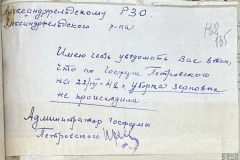 Александрфельдскому РЗО
Александрфельдского р-на
Имею честь уведомить Вас в том,
что по госхутн Петровского
на 22/VII-42 г уборка зерновых
не происходила
Администратор госхутны
Петровского
195